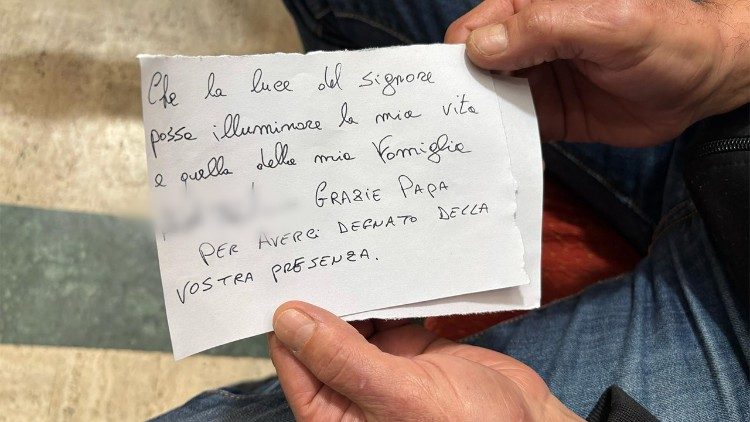 Che la luce del signore
possa illuminare la mia vita
e quella della mia Famiglia
GRAZIE PAPA
PER AVERCI DEGNATO DELLA
VOSTRA PRESENZA.